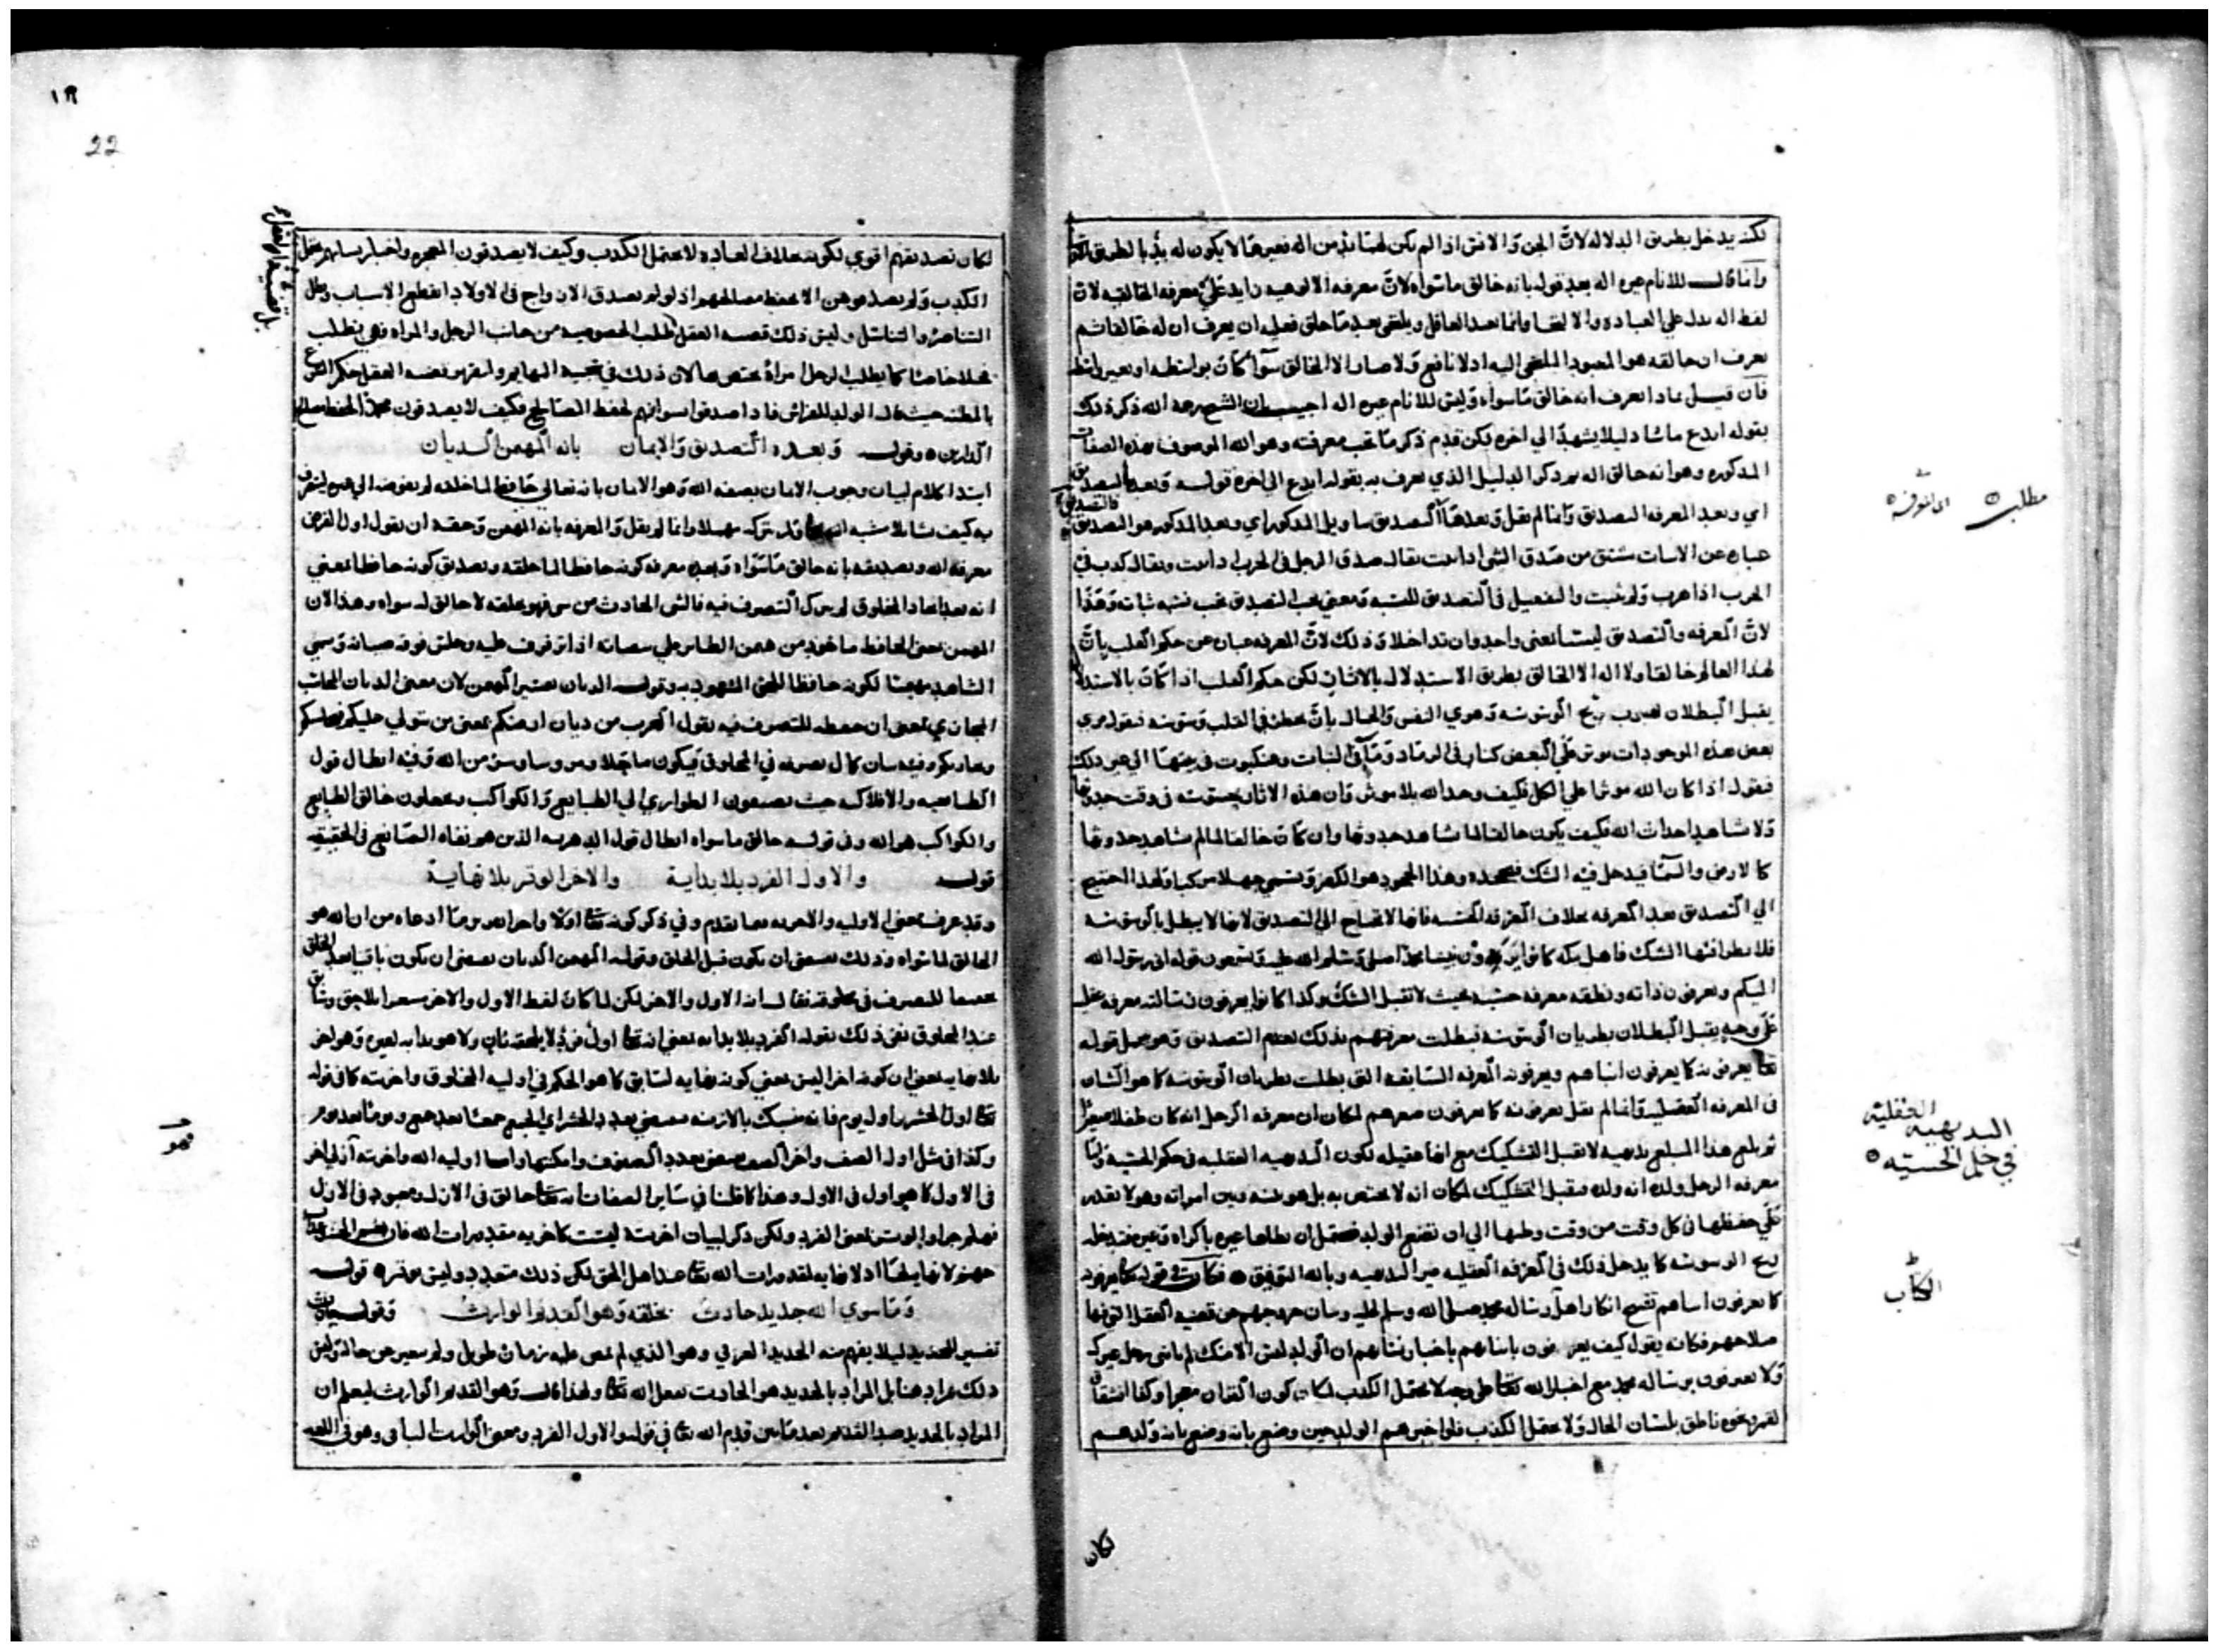 لكنه يدخل بطريق الدلالة لانّ الجن والانس اذا لم يكن لهما بدّ من اله
وانما قال للانام غيره اله بعد قوله بانه خالق ما سواه لانّ معرفة الالوهية زايد على معرفة الخالقية لان
لفظ اله يدل على العبادة والالتجا وانما يعبد العاقل ويلتجى بعد ما خلق فعليه ان يعرف ان له خالقا ثم
يعرف ان خالقه هو المعبود الملتجى اليه اذ لا نافع ولا ضار الا الخالق سوا كان بواسطة او بغير واسطة
فان قيل بماذا يعرف انه خالق ما سواه وليس للانام غيره اله اجيب بان الشيخ رحمه الله ذكر ذلك
بقوله ابدع ما شا دليلا يشهد الى اخره لكن قدم ذكر ما يجب معرفته وهو الله الموصوف بهذه الصفات
المذكورة وهو انه خالق اله ثم ذكر الدليل الذي يعرف به بقوله ابدع الى اخره قوله وبعد التصديق
اي وبعد المعرفة التصديق وانما لم يقل وبعدها التصديق بتاويل المذكور اي وبعد المذكور هو التصديق
فالتصديق
عبارة عن الاثبات مشتق من صدق الشي اذا ثبت يقال صدق الرجل في الحرب اذا ثبت ويقال كذب في
الحرب اذا هرب ولم يثبت والتفعيل في التصديق للنسبة ومعنى يجب التصديق يجب نسبة ثباته وهذا
لانّ المعرفة والتصديق ليستا بمعنى واحد وان تداخلا وذلك لانّ المعرفة عبارة عن حكم القلب بانّ
لهذا العالم خالقا ولا اله الا الخالق بطريق الاستدلال بالاثار لكن حكم القلب اذا كان بالاستدلال
يقبل البطلان لهبوب ريح الوسوسة وهوى النفس والحال بان يخطر في القلب وسوسة فيقول نرى
بعض هذه الموجودات موثرة على البعض كنار في الرماد وماء في النبات وعنكبوت في بيتها الى غير ذلك
فيقول اذا كان الله موثرا على الكل فكيف وحد الله بلا موثر فان هذه الاثار محسوسة في وقت حدوثها
ولا نشاهد احداث الله فكيف يكون خالقا لما نشاهد حدوثها وان كان خالقا لما لم نشاهد حدوثها
كالارض والسما فيدخل فيه الشك فيجحده وهذا الجحود هو الكفر ويسمى جهلا مركبا ولهذا احتيج
الى التصديق بعد المعرفة بخلاف المعرفة الحسية فانها لا تحتاج الى التصديق لانها لا يبطل بالوسوسة
فلا يطرا فيها الشك فاهل مكة كانوا يرون نبينا محمدا صلى وسلم الله عليه ويسمعون قوله اني رسول الله
اليكم ويعرفون ذاته ونطقه معرفة حسية بحيث لا تقبل الشك وكذا كانوا يعرفون رسالته معرفة عقلية
على وجه يقبل البطلان بطريان الوسوسة فبطلت معرفتهم بذلك لعدم التصديق وهو محمل قوله
تعا يعرفونه كما يعرفون ابناهم ويعرفونه المعرفة السابقة التي بطلت بطريان الوسوسة كما هو الشان
في المعرفة العقلية وانما لم يقل يعرفونه كما يعرفون صغرهم لمكان ان معرفة الرجل انه كان طفلا صغيرا
ثم بلغ هذا المبلغ بديهية لا تقبل التشكيك مع انها عقيلة لكون البديهية العقلية في حكم الحسية واما
معرفة الرجل ولده انه ولده فيقبل التشكيك لمكان انه لا يختص به بل هو بينه وبين امراته وهو لا يقدر
على حفظها في كل وقت من وقت وطيها الى ان تضع الولد فيحتمل ان يطاها غيره باكراه وغيره فيدخله
ريح الوسوسة كما يدخل ذلك في المعرفة العقلية غير البديهية وبالله التوفيق فكان في قوله تعا يعرفونه
كما يعرفون ابناهم تقبيح انكار اهل رسالة محمد صلى الله وسلم عليه وبيان خروجهم عن قضية العقل التي فيها
صلاحهم فكانه يقول كيف يعرفون بابناهم باخبار نسايهم ان الولد لبني الا منك لم ياتني رجل غيرك
ولا يعرفون برسالة محمد مع اخبار الله تعا على وجه لا يحتمل الكذب لمكان كون القران معجزا وكذا انشقاق
القمر ونحوه ناطق بلسان الحال ولا يحتمل الكذب فلو اخبرهم الولد حين وضع بانه وضع بانه ولدهم
لكان
مطلب
البديهية العقلية
في حكم الحسية
الكتاب
١٩
22
لكان تصديقهم اقوى لكونه بخلاف العادة لا يحتمل الكذب وكيف لا يصدقون المعجزة واخبار نسايهم يحتمل
الكذب ولم يصدقوهن الا لحفظ مصالحهم اذ لو لم يصدق الازواج في الاولاد انقطع الاسباب وبطل
التناصر والتناسل وليس ذلك قضية العقل طلب الخصوصية من جانب الرجل والمراة فهي يطلب
بل قضية العقل
محلا خاصا كما يطلب الرجل امراة يختص بها لان ذلك في تجنب البهايم ولتقرير قضية العقل حكم الشرع
بالمظنة حيث قال الولد للفراش فاذا صدقوا نسوانهم لحفظ المصالح فكيف لا يصدقون محمدا لحفظ مصالح
الدارين وقوله وبعده التصديق والايمان بانه المهيمن الديان
ابتدا كلام لبيان وجوب الايمان بصفة الله وهو الايمان بانه تعالى حافظ لما خلقه لم يفوضه الى غيره ليتصرف
به كيف شا ولم يتركه مهملا وانما لم يقل والمعرفة بانه المهيمن وحقه ان يقول اول الفرض
معرفة الله وتصديقه بانه خالق ما سواه وبعده معرفة كونه حافظا لما خلقه وتصديق كونه حافظا بمعنى
انه بعد ايجاد المخلوق لم يترك التصرف فيه فالشي الحادث من شي فهو بخلقه لا خالق له سواه وهذا لان
المهيمن بمعنى الحافظ ماخوذ من هيمن الطاير على بيضاته اذا رفرف عليه وحلق فوقه صيانة ويسمى
الشاهد مهيمنا لكونه حافظا للحق المشهود به وقوله الديان تفسير المهيمن لان معنى الديان المحاسب
المجازي بمعنى ان حفظه للتصرف فيه يقول العرب من ديان ارضكم بمعنى من يتولى عليكم فيحاسبكم
ويجازيكم وفيه بيان كمال تصرفه في المخلوق فيكون ما جل وما دق من الله وفيه ابطال قول
الطبايعية والافلاكية حيث يضيفون الطواري الى الطبايع والكواكب ويجعلون خالق الطبايع
والكواكب هو الله وفي قوله خالق ما سواه ابطال قول الدهرية الذين هم نفاة الصانع في الحقيقة
قوله والاول الفرد بلا بداية والاخر الوتر بلا نهاية
وقد عرف معنى الاولية والاخرية فيما تقدم وفي ذكر كونه تعا اولا واخرا تقرير ما ادعاه من ان الله هو
الخالق لما سواه وذلك يقتضي ان يكون قبل الخلق وقوله المهيمن الديان يقتضي ان يكون باقيا بعد الخلق
تحقيقا للتصرف في مخلوقه فقال انه الاول والاخر لكن لما كان لفظ الاول والاخر يشعر بلاحق وسابق
عند المخلوق نفى ذلك بقوله الفرد بلا بداية يعني انه تعا اول فرد لا يلحقه ثان ولا هو بداية لغيره وهو اخر
بلا نهاية يعني ان كونه اخرا ليس يعني كونه نهاية لسابق كما هو الحكم في اولية المخلوق واخريته كما في قوله
تعا اول الحشر واول يوم فانه تمسك بالازمنة فيقتضي تعدد الحشر اي الجمع جمعا بعد جمع ويوما بعد يوم
وكذا في مثل اول الصف واخر الصف يقتضي تعدد الصفوف وامكنتها واما اولية الله واخريته ازلي اخر
في الاول كما هو اول في الاول وهذا كما قلنا في ساير الصفات انه تعا خالق في الازل ومعبود في الازل
فهلم جرا والوتر بمعنى الفرد ولكن ذكر لبيان اخريته ليست كاخرية مقدورات الله فان نعيم الجنة وعذاب
جهنم لا نهاية لها اذ لا نهاية لمقدورات الله تعا عند اهل الحق لكن ذلك متعدد وليس بوتر قوله
وما سوى الله جديد حادث بخلقه وهو القديم الوارث وقوله حادث
تفسير للجديد ليلا يفهم منه الجديد العرفي وهو الذي لم يمض عليه زمان طويل ولم يتغير عن حاله وليس
ذلك بمراد هنا بل المراد بالجديد هو الحادث بفعل الله تعا ولهذا قال وهو القديم الوارث ليعلم ان
المراد بالجديد ضد القديم بعد ما بين قدم الله تعا في قوله والاول الفرد ومعنى الوارث الباقي وهو في اللغة